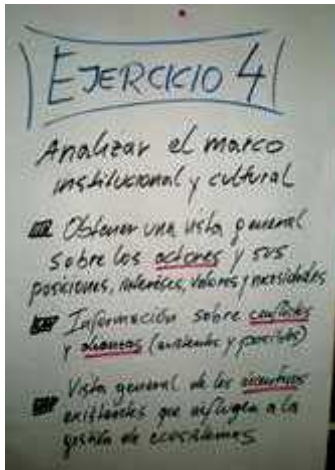 EJERCICIO 4
Analizar el marco
institucional y cultural
Obtener una vista general
sobre los actores y sus
posiciones, intereses, valores y necesidades
Información sobre conflictos
y alianzas (existentes y posibles)
Vista general de los incentivos
existentes que influyen a la
gestión de ecosistemas